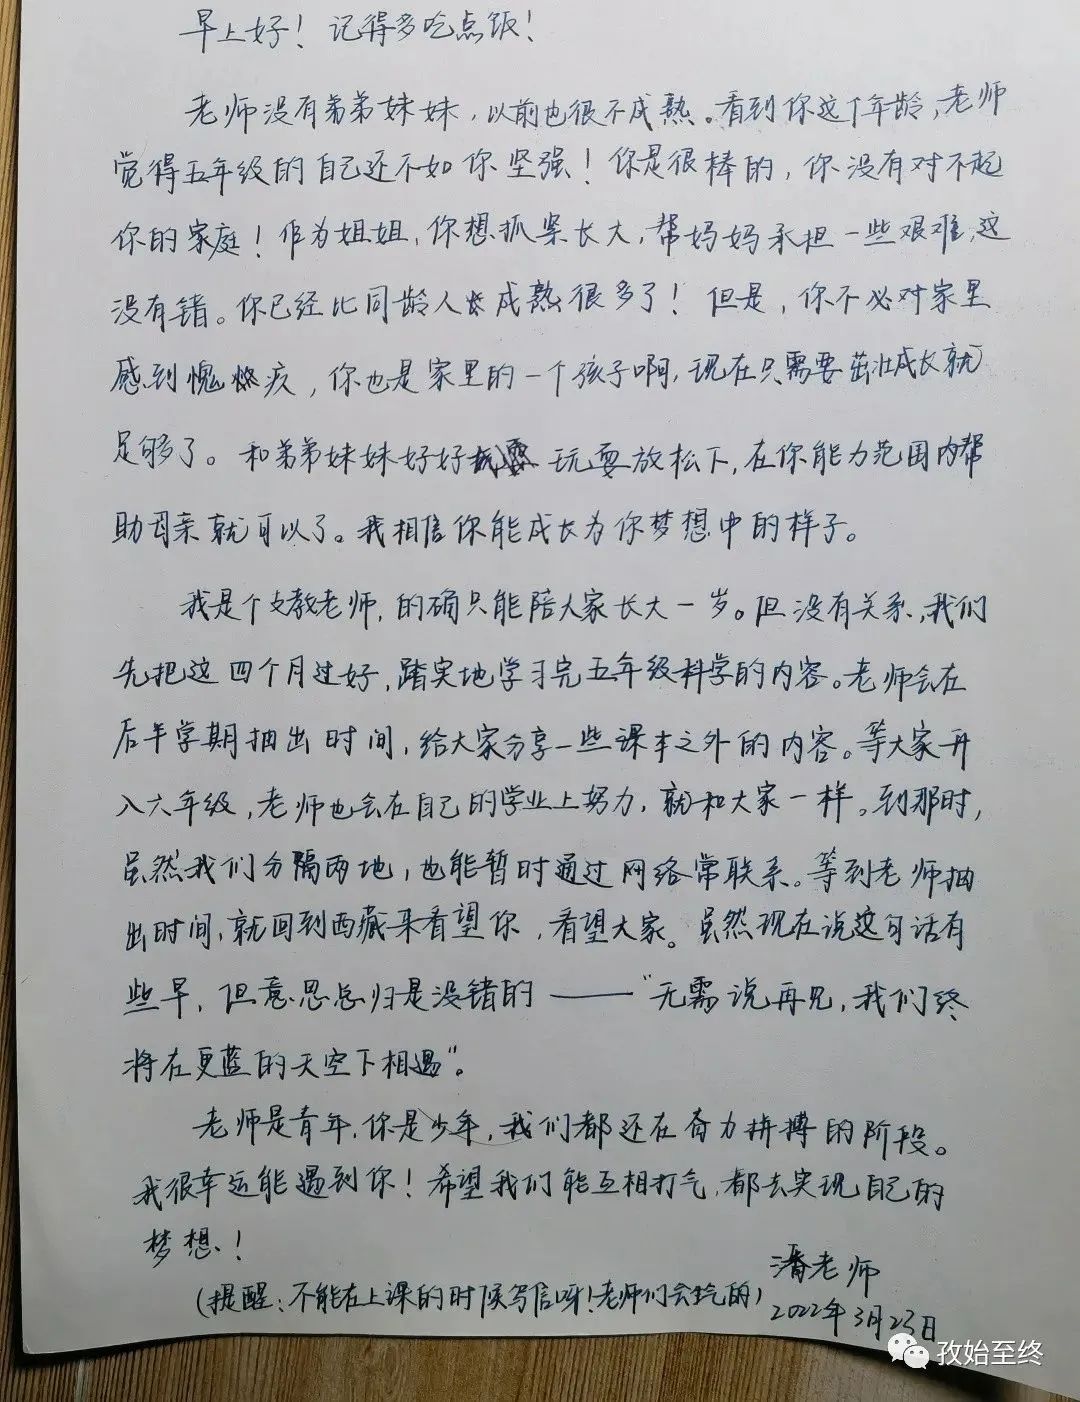 早上好！记得多吃点饭！
老师没有弟弟妹妹，以前也很不成熟。看到你这个年龄，老师
觉得五年级的自己还不如你坚强！你是很棒的，你没有对不起
你的家庭！作为姐姐，你想抓紧长大，帮妈妈承担一些艰难，这
没有错。你已经比同龄人成熟很多了！但是，你不必对家里
感到愧疚，你也是家里的一个孩子啊，现在只需要茁壮成长就
足够了。和弟弟妹妹好好玩耍放松下，在你能力范围内帮
助母亲就可以了。我相信你能成长为你梦想中的样子。
我是个支教老师，的确只能陪大家长大一岁。但没有关系，我们
先把这四个月过好，踏实地学习完五年级科学的内容。老师会在
后半学期抽出时间，给大家分享一些课本之外的内容。等大家升
入六年级，老师也会在自己的学业上努力，就和大家一样。到那时，
虽然我们分隔两地，也能暂时通过网络常联系。等到老师抽
出时间，就回到西藏来看望你，看望大家。虽然现在说这句话有
些早，但意思总归是没错的——“无需说再见，我们终
将在更蓝的天空下相遇”。
老师是青年，你是少年，我们都还在奋力拼搏的阶段。
我很幸运能遇到你！希望我们能互相打气，都去实现自己的
梦想！
潘老师
(提醒：不能在上课的时候写信呀！老师们会气的)
2022年3月23日
孜始至终